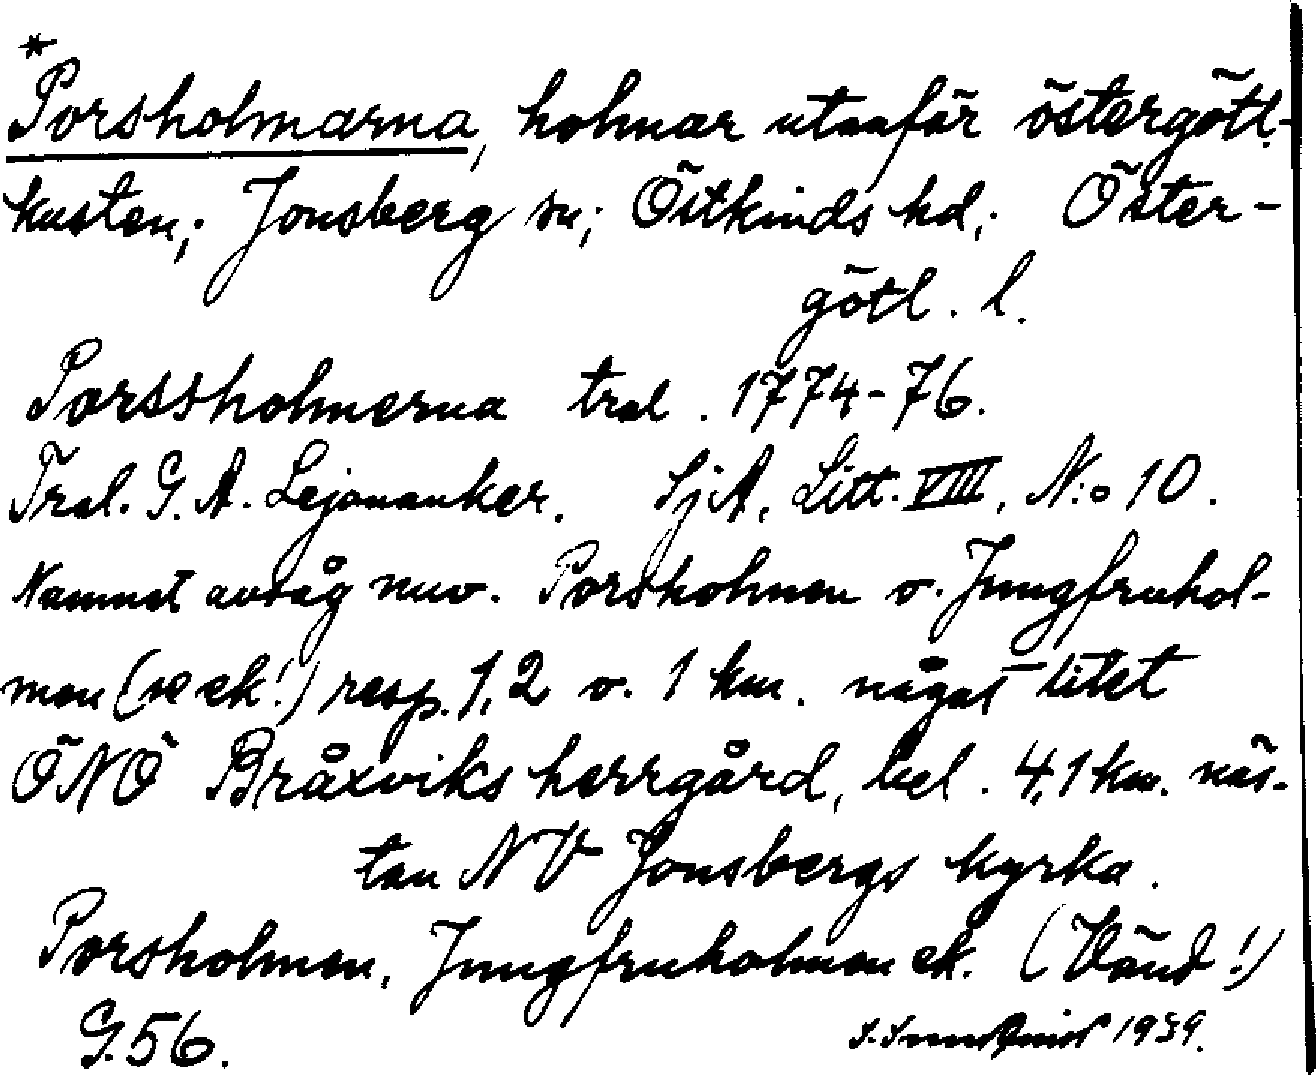 *
Porsholmarna, holmar utanför östergötl.-
kusten; Jonsberg sn; Östkinds hd; Öster-
götl. l.
Porssholmerna tral. 1774-76.
Tral. G. A. Lejonanker. SjA, Litt. VIII, N:o 10.
Namnet avsåg nuv. Porsholmen o. Jungfruhol-
men (se ek!) resp. 1,2 o. 1 km. något litet
ÖNÖ Bråxviks herrgård, bel. 4,1 km. näs-
tan NV Jonsbergs kyrka.
Porsholmen, Jungfruholmen ek. (Vänd!)
G.56. 1939.